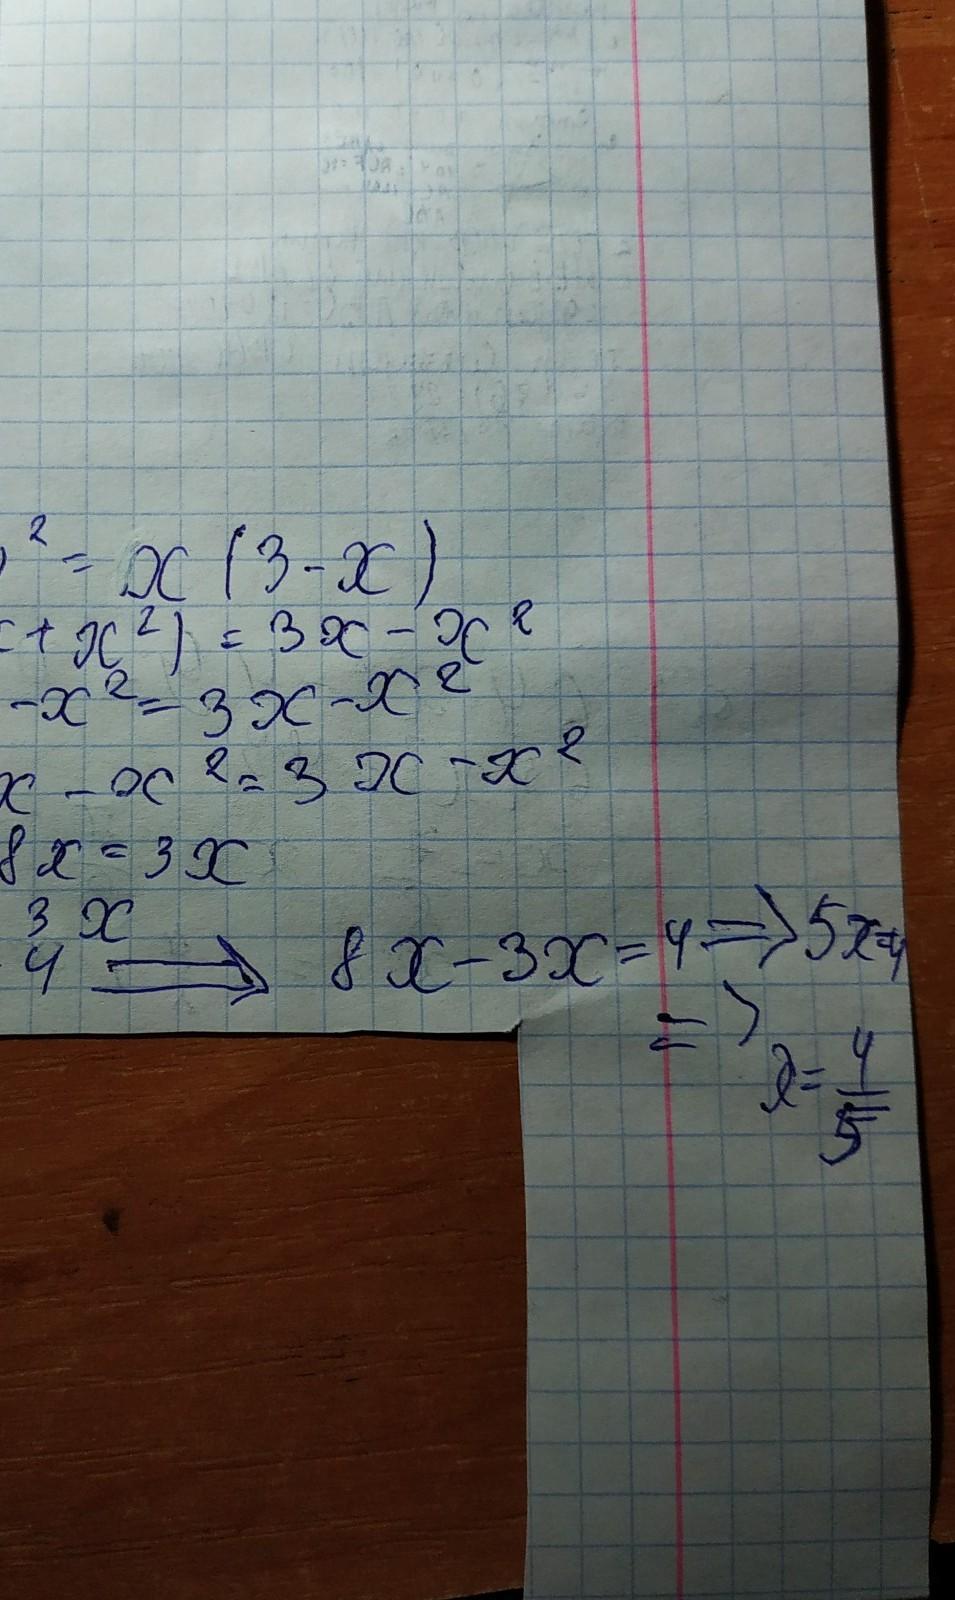 ² = x (3 - x)
+ x²) = 3x - x²
- x² = 3x - x²
x - x² = 3x - x²
8x = 3x
3x
4 ⟹ 8x - 3x = 4 ⟹ 5x = 4
⟹
x = 4/5